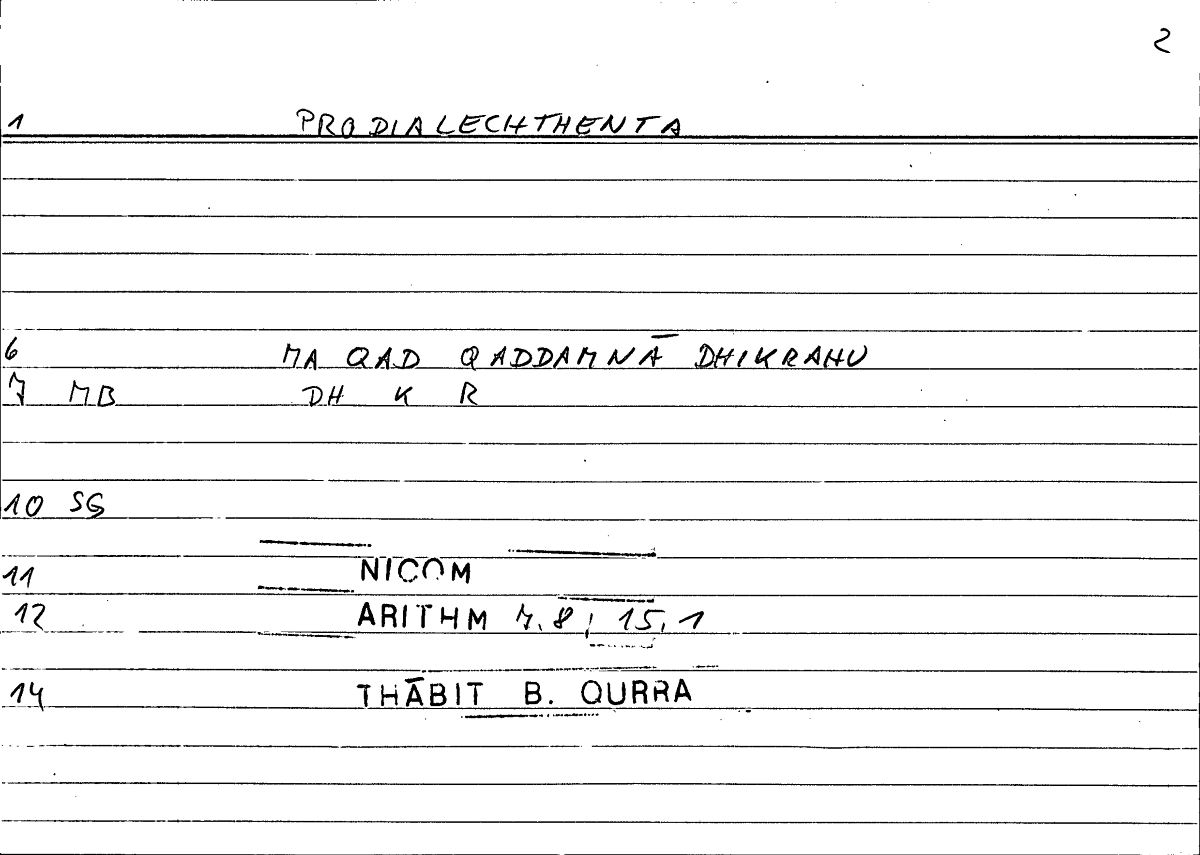 2
1 PRODIALECHTHENTA
6 MA QAD QADDAMNĀ DHIKRAHU
7 MB DH K R
10 SG
11 NICOM
12 ARITHM 7.8; 15.1
14 THĀBIT B. QURRA